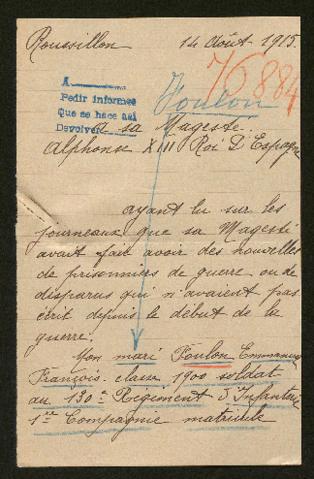 Roussillon 14 Août 1915.
76884
A
Pedir informes
Que se hace así
Devolver
Foulon
a sa Magesté.
Alphonse XIII Roi D'Espagne
ayant lu sur les
journeaux que sa Magesté
avait fait avoir des nouvelles
de prisonniers de guerre ou de
disparus qui n'avaient pas
écrit depuis le début de la
guerre.
Mon mari Foulon Emmanuel
François. classe 1900 soldat
au 130e Regiment d'Infanterie
1ère Compagnie matricule